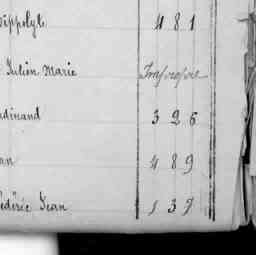 Hippolyte 481
Julien Marie
dinand 326
an 489
édéric Jean 137